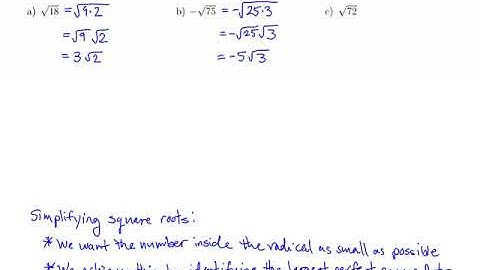 a) √18 = √9·2 b) −√75 = −√25·3 c) √72
= √9 √2 = −√25 √3
= 3√2 = −5√3
Simplifying square roots:
* We want the number inside the radical as small as possible
* We achieve this by identifying the largest perfect square factor